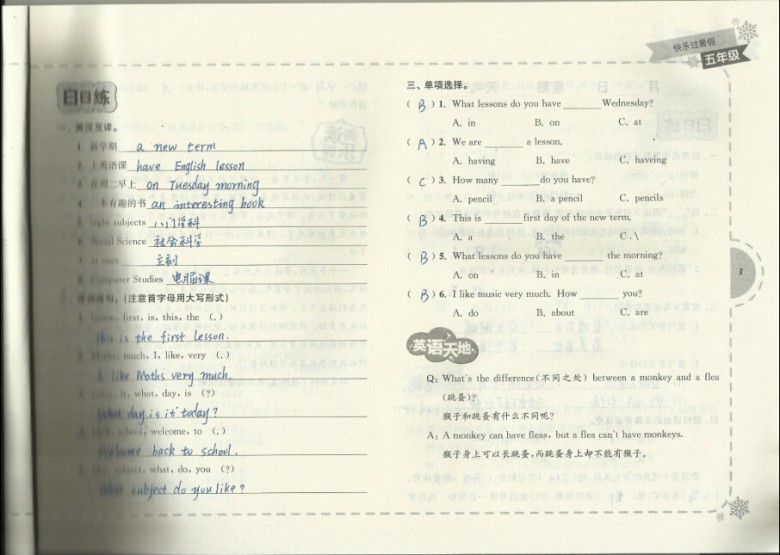 快乐过暑假
五年级
日日练
一、画报互译。
1. 新学期 a new term
2. 上英语课 have English lesson
3. 在周二早上 on Tuesday morning
4. 一本有趣的书 an interesting book
5. eight subjects 八门学科
6. Social Science 社会科学
7. at once 立刻
8. Computer Studies 电脑课
(注意首字母用大写形式)
1. lesson, first, is, this, the (.)
This is the first lesson.
2. Maths, much, I, like, very (.)
I like Maths very much.
3. today, it, what, day, is (?)
What day is it today?
school, welcome, to (.)
Welcome back to school.
subject, what, do, you (?)
What subject do you like?
三、单项选择。
( B ) 1. What lessons do you have ______ Wednesday?
A. in B. on C. at
( A ) 2. We are ______ a lesson.
A. having B. have C. haveing
( C ) 3. How many ______ do you have?
A. pencil B. a pencil C. pencils
( B ) 4. This is ______ first day of the new term.
A. a B. the C. \
( B ) 5. What lessons do you have ______ the morning?
A. on B. in C. at
( B ) 6. I like music very much. How ______ you?
A. do B. about C. are
英语天地
Q: What's the difference(不同之处) between a monkey and a flea
(跳蚤)?
猴子和跳蚤有什么不同呢?
A: A monkey can have fleas, but a flea can't have monkeys.
猴子身上可以长跳蚤,而跳蚤身上却不能有猴子。
3